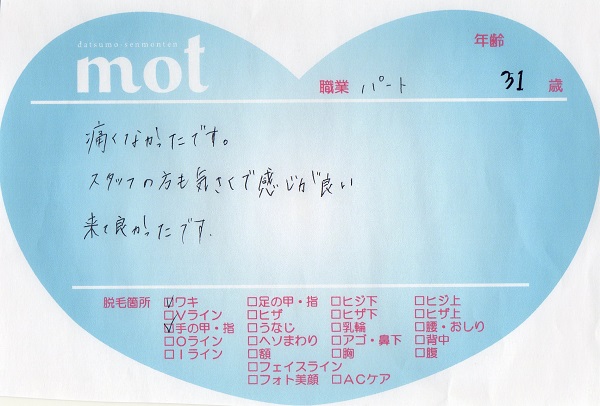 datsumo-senmonten
mot
年齢
職業 パート 31 歳
痛くなかったです。
スタッフの方も気さくで感じが良い
来て良かったです.
脱毛箇所 ☑ワキ □足の甲・指 □ヒジ下 □ヒジ上
□Vライン □ヒザ □ヒザ下 □ヒザ上
☑手の甲・指 □うなじ □乳輪 □腰・おしり
□Oライン □ヘソまわり □アゴ・鼻下 □背中
□Iライン □額 □胸 □腹
□フェイスライン
□フォト美顔 □ACケア